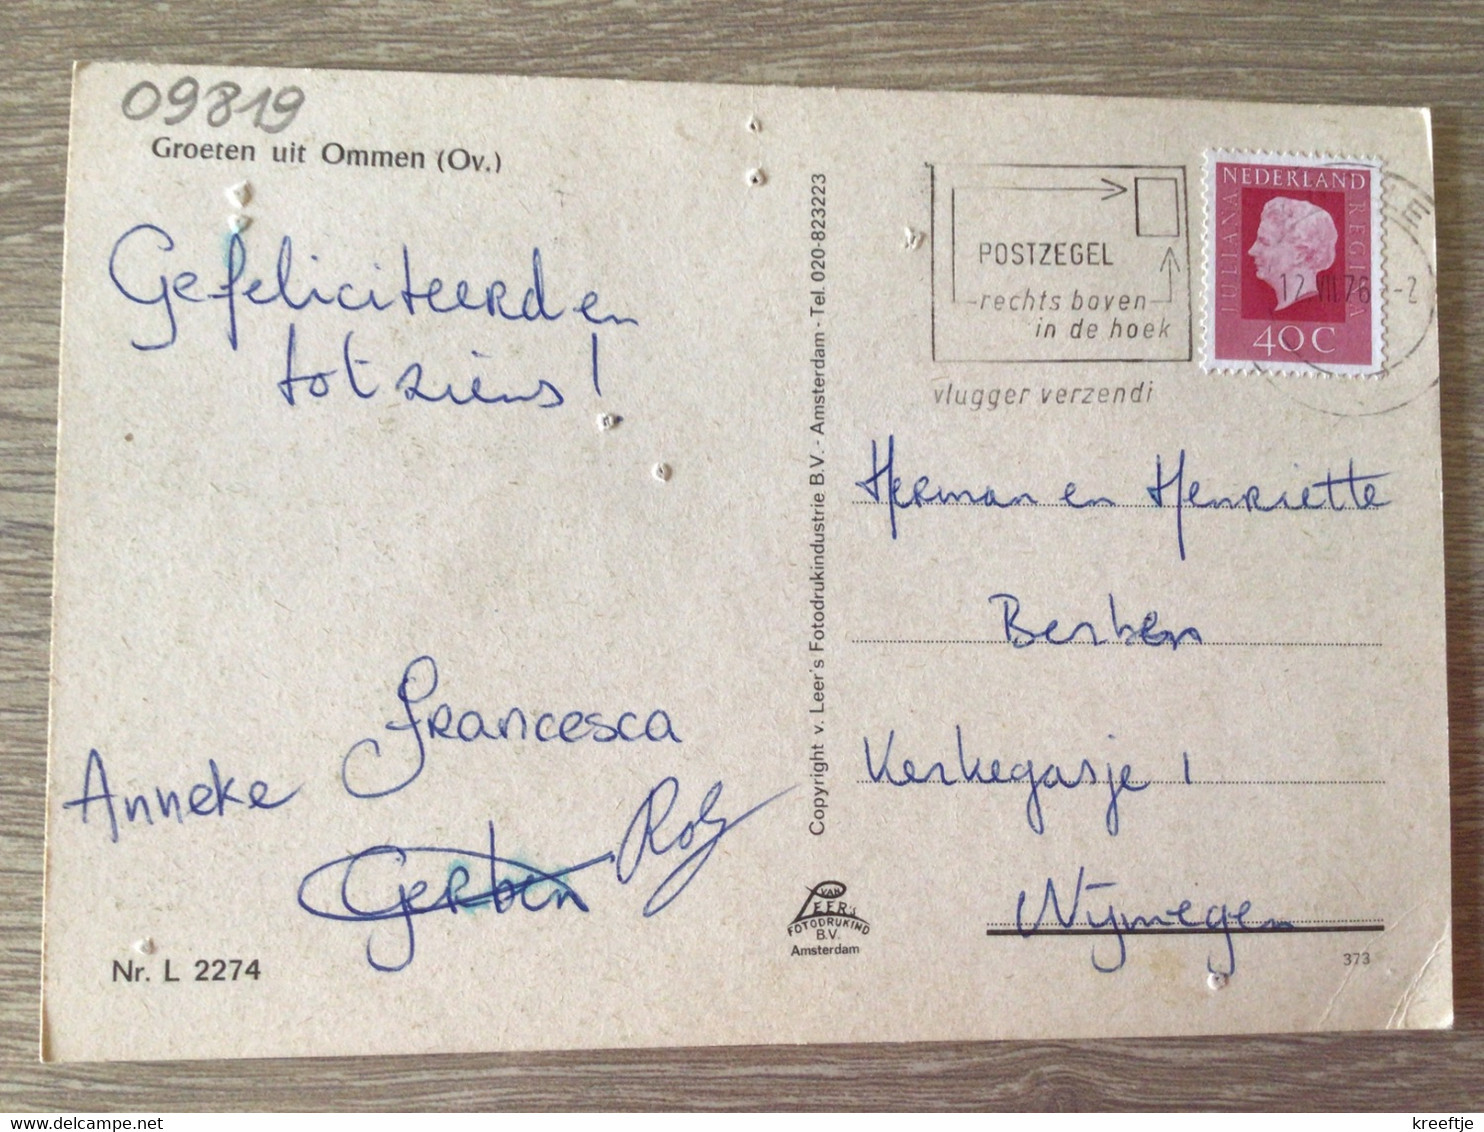 09819
Groeten uit Ommen (Ov.)
Gefeliciteerd en
tot ziens!
Francesca
Anneke
Rob
Gerben
Nr. L 2274
Copyright v. Leer's Fotodrukindustrie B.V. - Amsterdam - Tel. 020-823223
VAN
LEER's
FOTODRUKIND
B.V.
Amsterdam
POSTZEGEL
rechts boven
in de hoek
vlugger verzendi
NEDERLAND
JULIANA REGINA
40 C
12 VII.76 -2
Herman en Henriette
Berben
Kerkegasje 1
Nijmegen
373
© www.delcampe.net
kreeftje